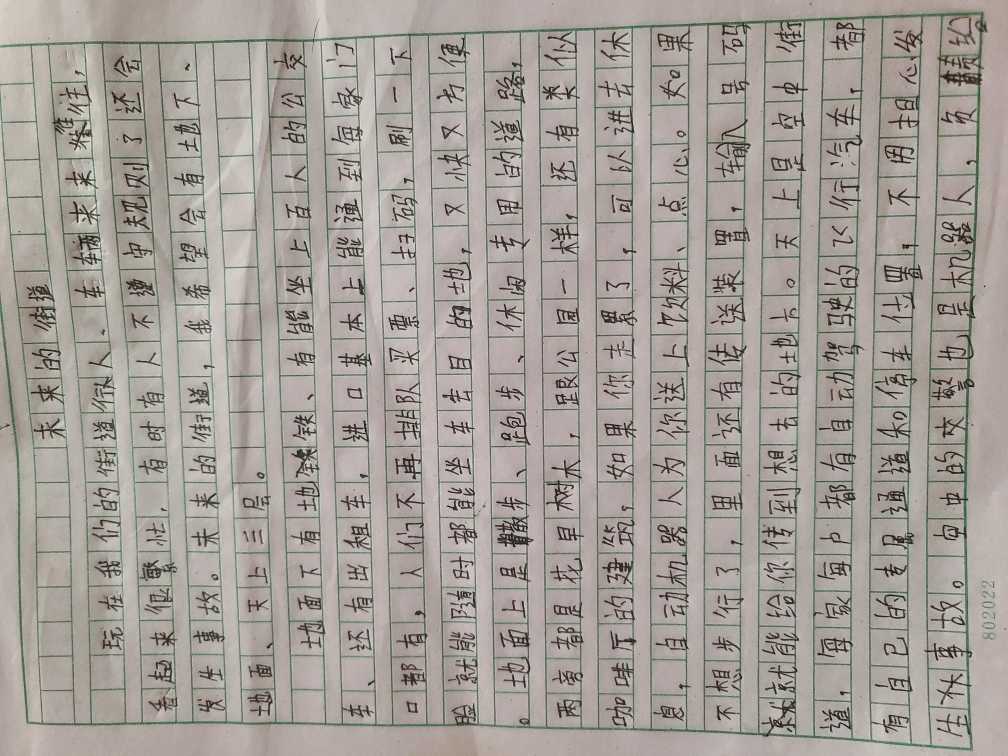 未来的街道
玩在我们的街道行人、车辆来来往往，
看起来很繁忙，有时有人不遵守规则了还会
发生事故。未来的街道，我希望会有地下、
地面、天上三层。
地面下有地铁、有能坐上百人的公交
车、还有出租车，进口基本上能通到每家门
口都有，人们不再排队买票、扫码，刷一下
脸就能随时都能坐车去目的地，又快又方便
。地面上是散步、跑步、休闲专用的道路，
两旁都是花草树木，跟公园一样，还有类似
咖啡厅的建筑，如果你走累了，可以进去休
息，自动机器人为你送上饮料、点心。如果
不想步行了，里面还有传送装置，输入号码
就能给你传到想去的地方。天上是空中街
道，每家每户都有自动驾驶的飞行汽车，都
有自己的专属通道和停车位置，不用担心发
生事故。空中的交警也是机器人，负
802022